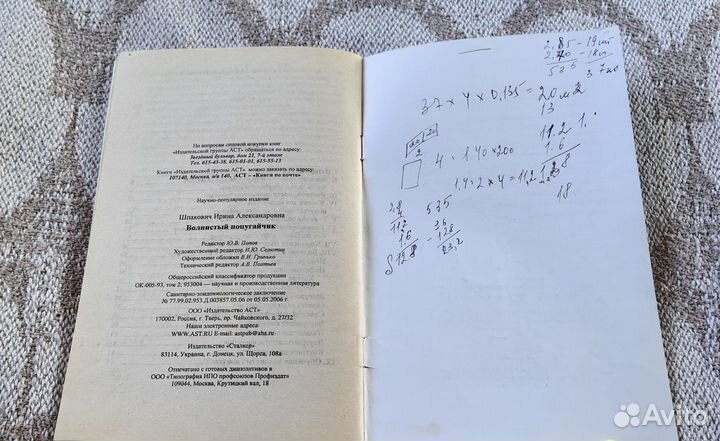 По вопросам оптовой покупки книг
«Издательской группы АСТ» обращаться по адресу:
Звездный бульвар, дом 21, 7-й этаж
Тел. 615-43-38, 615-01-01, 615-55-13
Книги «Издательской группы АСТ» можно заказать по адресу:
107140, Москва, а/я 140, АСТ – «Книги по почте»
Научно-популярное издание
Шпакович Ирина Александровна
Волнистый попугайчик
Редактор Ю.В. Попов
Художественный редактор И.Ю. Селютин
Оформление обложки В.И. Гринько
Технический редактор А.В. Полтьев
Общероссийский классификатор продукции
ОК-005-93, том 2; 953004 — научная и производственная литература
Санитарно-эпидемиологическое заключение
№ 77.99.02.953.Д.003857.05.06 от 05.05.2006 г.
ООО «Издательство АСТ»
170002, Россия, г. Тверь, пр. Чайковского, д. 27/32
Наши электронные адреса:
WWW.AST.RU E-mail: astpub@aha.ru
Издательство «Сталкер»
83114, Украина, г. Донецк, ул. Щорса, 108а
Отпечатано с готовых диапозитивов в
ООО «Типография ИПО профсоюзов Профиздат»
109044, Москва, Крутицкий вал, 18
2.85 – 19
535
37 × 4 × 0,135 = 20 м
13
11.2
1.6
4. 1.40 × 200
1.4 × 2 × 4 = 11.2
12.8
18.
28 535
112
16
128
23,2
Avito